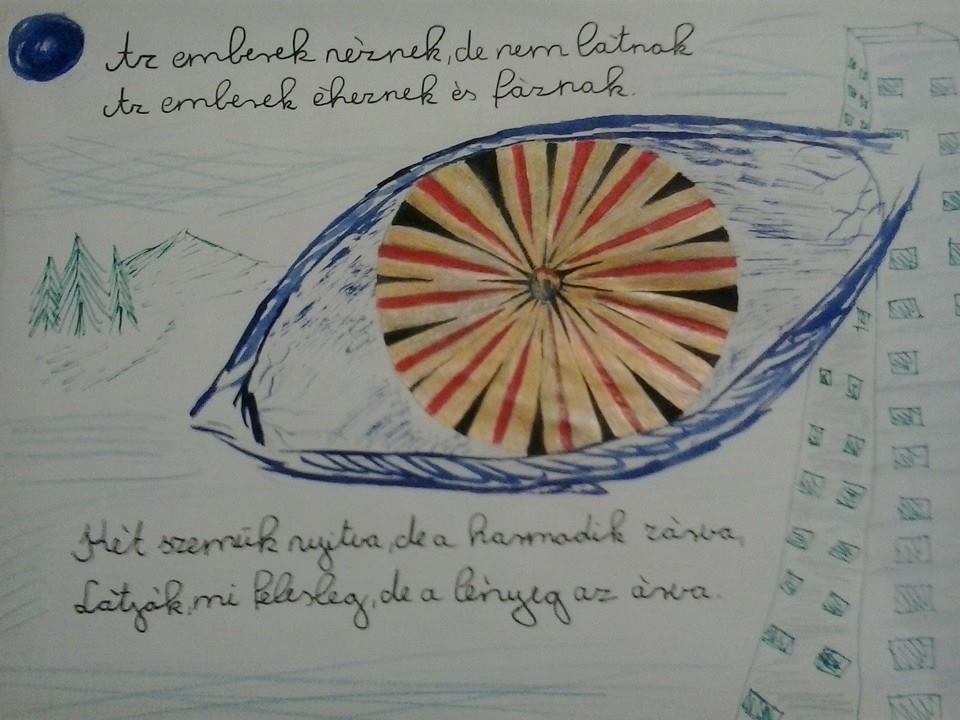 Az emberek nèznek, de nem làtnak
Az emberek èheznek ès fàznak.
Kèt szemük nyitva, de a harmadik zàrva,
Làtjàk, mi felesleg, de a lènyeg az àrva.